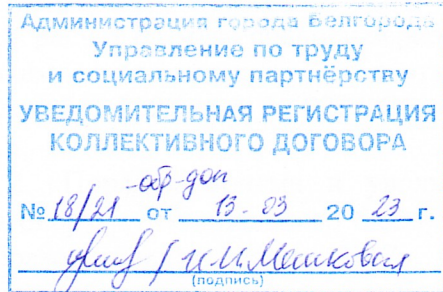 Администрация города Белгорода
Управление по труду
и социальному партнёрству
УВЕДОМИТЕЛЬНАЯ РЕГИСТРАЦИЯ
КОЛЛЕКТИВНОГО ДОГОВОРА
-обр-доп
№ 18/21 от 13.03 20 23 г.
/ И.И. Мешковая
(подпись)